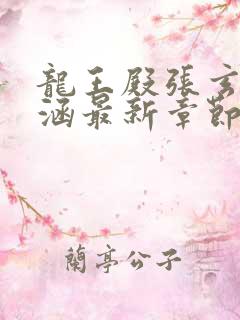 龍王殿張玄
涵最新章節
蘭亭公子